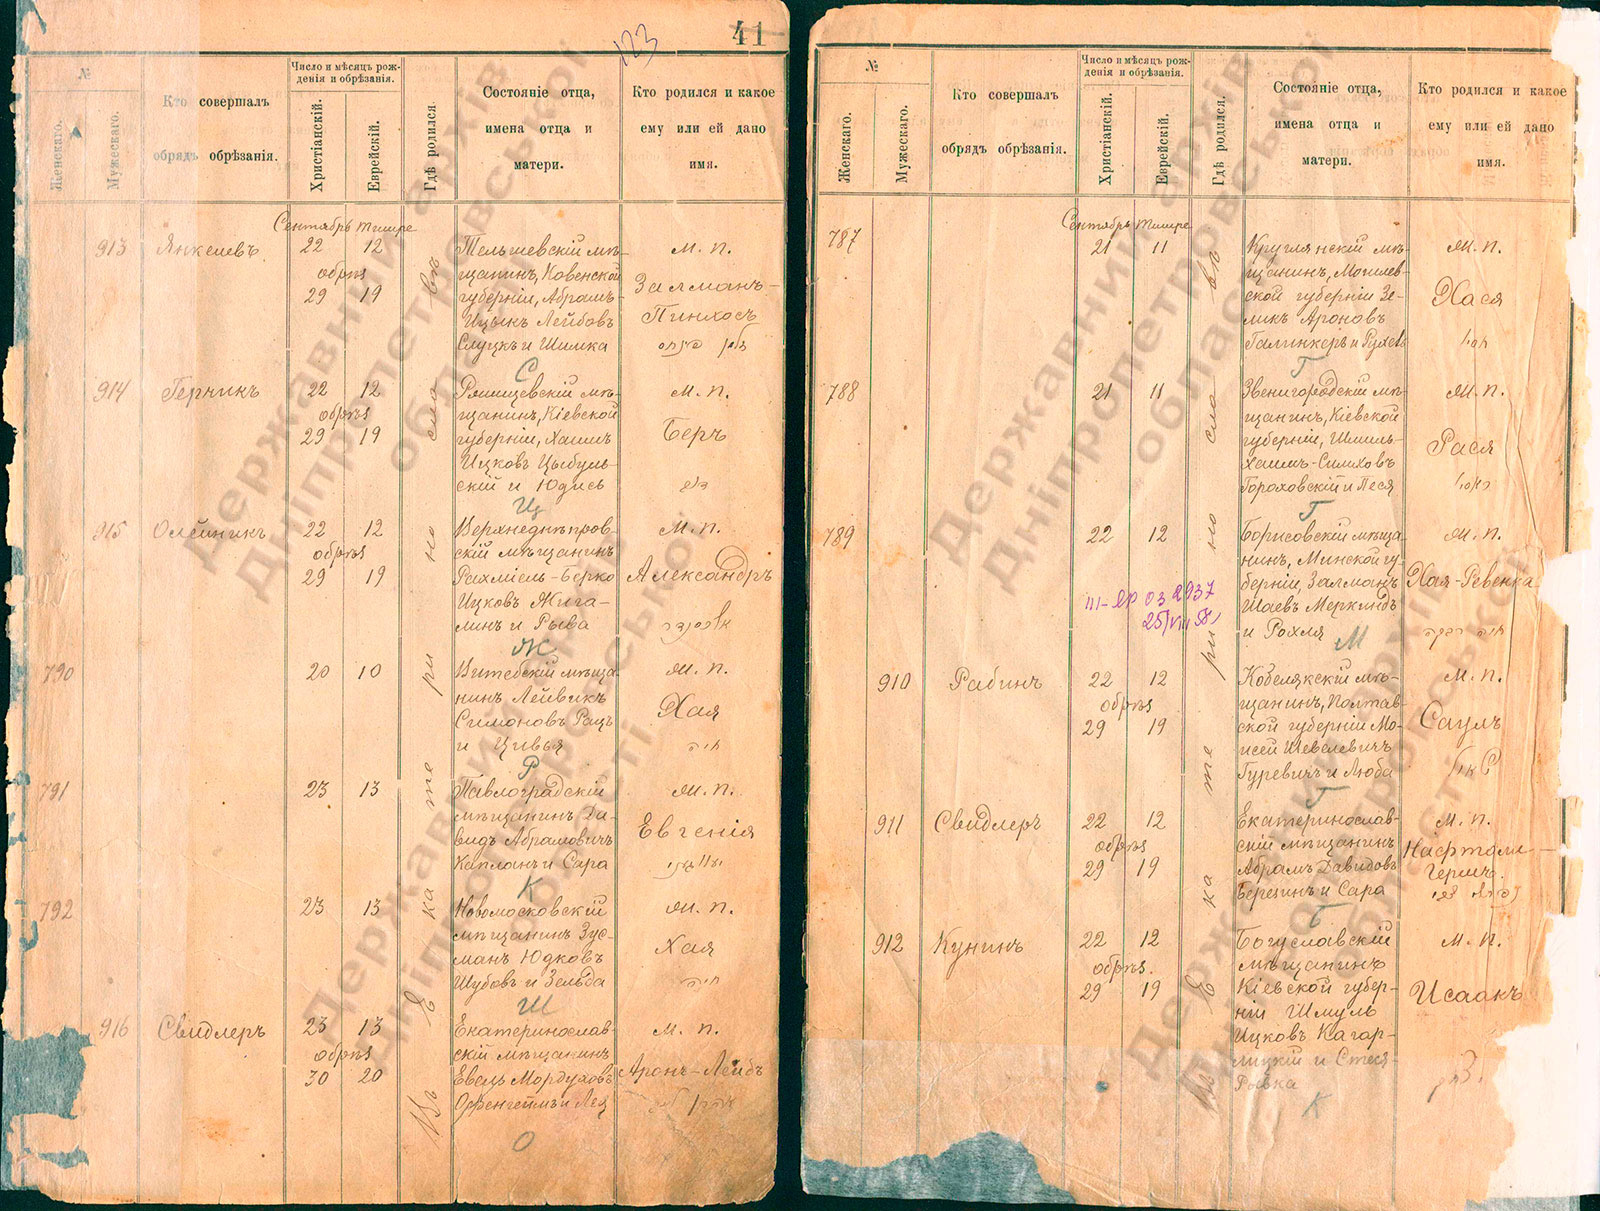 123
41
№
Женскаго.
Мужескаго.
Кто совершалъ
обрядъ обрѣзанія.
Число и мѣсяцъ рож-
денія и обрѣзанія.
Христіанскій.
Еврейскій.
Гдѣ родился.
Состояніе отца,
имена отца и
матери.
Кто родился и какое
ему или ей дано
имя.
Сентябрь Тишре
Въ Екатеринославѣ
913 Янкелевъ 22 12
обрѣз
29 19
Тельшевскій мѣ-
щанинъ, Ковенской
губерніи, Абрамъ-
Ицыкъ Лейбовъ
Слуцкъ и Шимка
С
м. п.
Залманъ-
Пинхосъ
914 Герчикъ 22 12
обрѣз
29 19
Ряшщевскій мѣ-
щанинъ, Кіевской
губерніи, Хаимъ
Ицковъ Цыбуль-
скій и Юдись
Ц
м. п.
Беръ
915 Олейникъ 22 12
обрѣз
29 19
Верхнеднѣпров-
скій мѣщанинъ
Рахміель-Берко
Ицковъ Жига-
линъ и Рыва
Ж
м. п.
Александръ
790 20 10
Витебскій мѣща
нинъ Лейвикъ
Симоновъ Рацъ
и Цивья
Р
м. п.
Хая
חיה
791 23 13
Павлоградскій
мѣщанинъ Да-
видъ Абрамовичъ
Капланъ и Сара
К
м. п.
Евгенія
792 23 13
Новомосковскій
мѣщанинъ Зус-
манъ Юдковъ
Шубовъ и Зельда
Ш
м. п.
Хая
חיה
916 Свидлеръ 23 13
обрѣз
30 20
Екатеринослав-
скій мѣщанинъ
Евель Мордуховъ
Офенгеймъ и Лея
О
м. п.
Аронъ-Лейбъ
№
Женскаго.
Мужескаго.
Кто совершалъ
обрядъ обрѣзанія.
Число и мѣсяцъ рож-
денія и обрѣзанія.
Христіанскій.
Еврейскій.
Гдѣ родился.
Состояніе отца,
имена отца и
матери.
Кто родился и какое
ему или ей дано
имя.
Сентябрь Тишре
Въ Екатеринославѣ
787 21 11
Круглянскій мѣ-
щанинъ, Могилев-
ской губерніи Зе-
ликъ Ароновъ
Галинкеръ и Рухев
Г
м. п.
Хася
788 21 11
Звенигородскій мѣ-
щанинъ, Кіевской
губерніи,
Гороховскій и Песя
Г
м. п.
Рася
789 22 12
Борисовскій мѣща
нинъ, Минской гу
берніи, Залманъ
Шаевъ Меркиндъ
и Рохля
М
м. п.
Хая-Ревекка
חיה רבקה
910 Рабинъ 22 12
обрѣз
29 19
Кобелякскій мѣ-
щанинъ, Полтав-
ской губерніи Мо-
исей Шевелевичъ
Гуревичъ и Люба
Г
м. п.
Саулъ
911 Свидлеръ 22 12
обрѣз
29 19
Екатеринослав-
скій мѣщанинъ
Абрамъ Давидовъ
Берецинъ и Сара
Б
м. п.
Нафтоли-
Гершъ.
912 Кунинъ 22 12
обрѣз.
29 19
Богуславскій
мѣщанинъ
Кіевской губер-
ніи Шмуль
Ицковъ Кагар-
лицкій и Стеся-
Ривка
К
м. п.
Исаакъ
Державний архів
Дніпропетровської
області